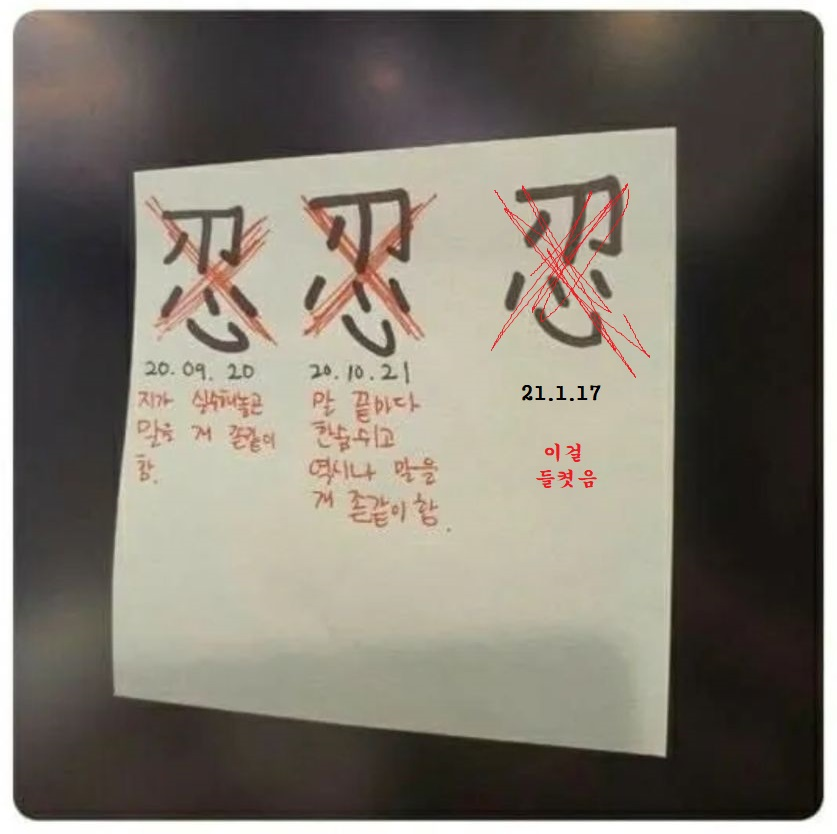 忍 忍 忍
20.09.20
지가 실수해놓곤
말을 개 존같이
함.
20.10.21
말 끝마다
한숨쉬고
역시나 말을
개 존같이 함.
21.1.17
이걸
들켯음